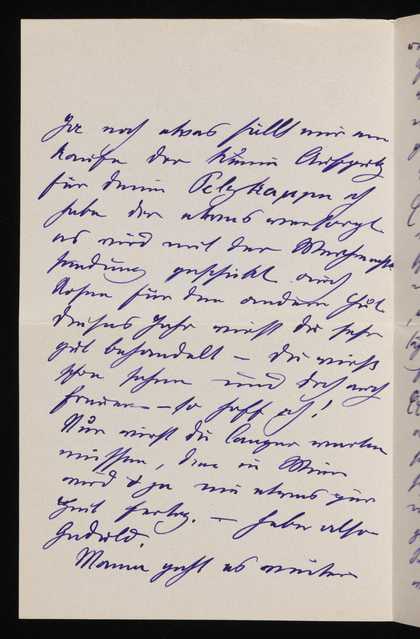 Ja noch etwas fällt mir ein
kaufe den kleinen Aufputz
für deine Pelzkappe ich
habe dir etwas versorgt
es wird mit der Weihnachts
sendung geschickt auch
Rosen für den andern Hut
Dieses Jahr wirst du sehr
gut behandelt – du wirst
schon sehen und dich auch
freuen – so hoff ich!
Nur wirst du länger warten
müssen, denn in Wien
wird ja nie etwas zur
Zeit fertig. – habe also
Geduld.
Mama geht es weiter